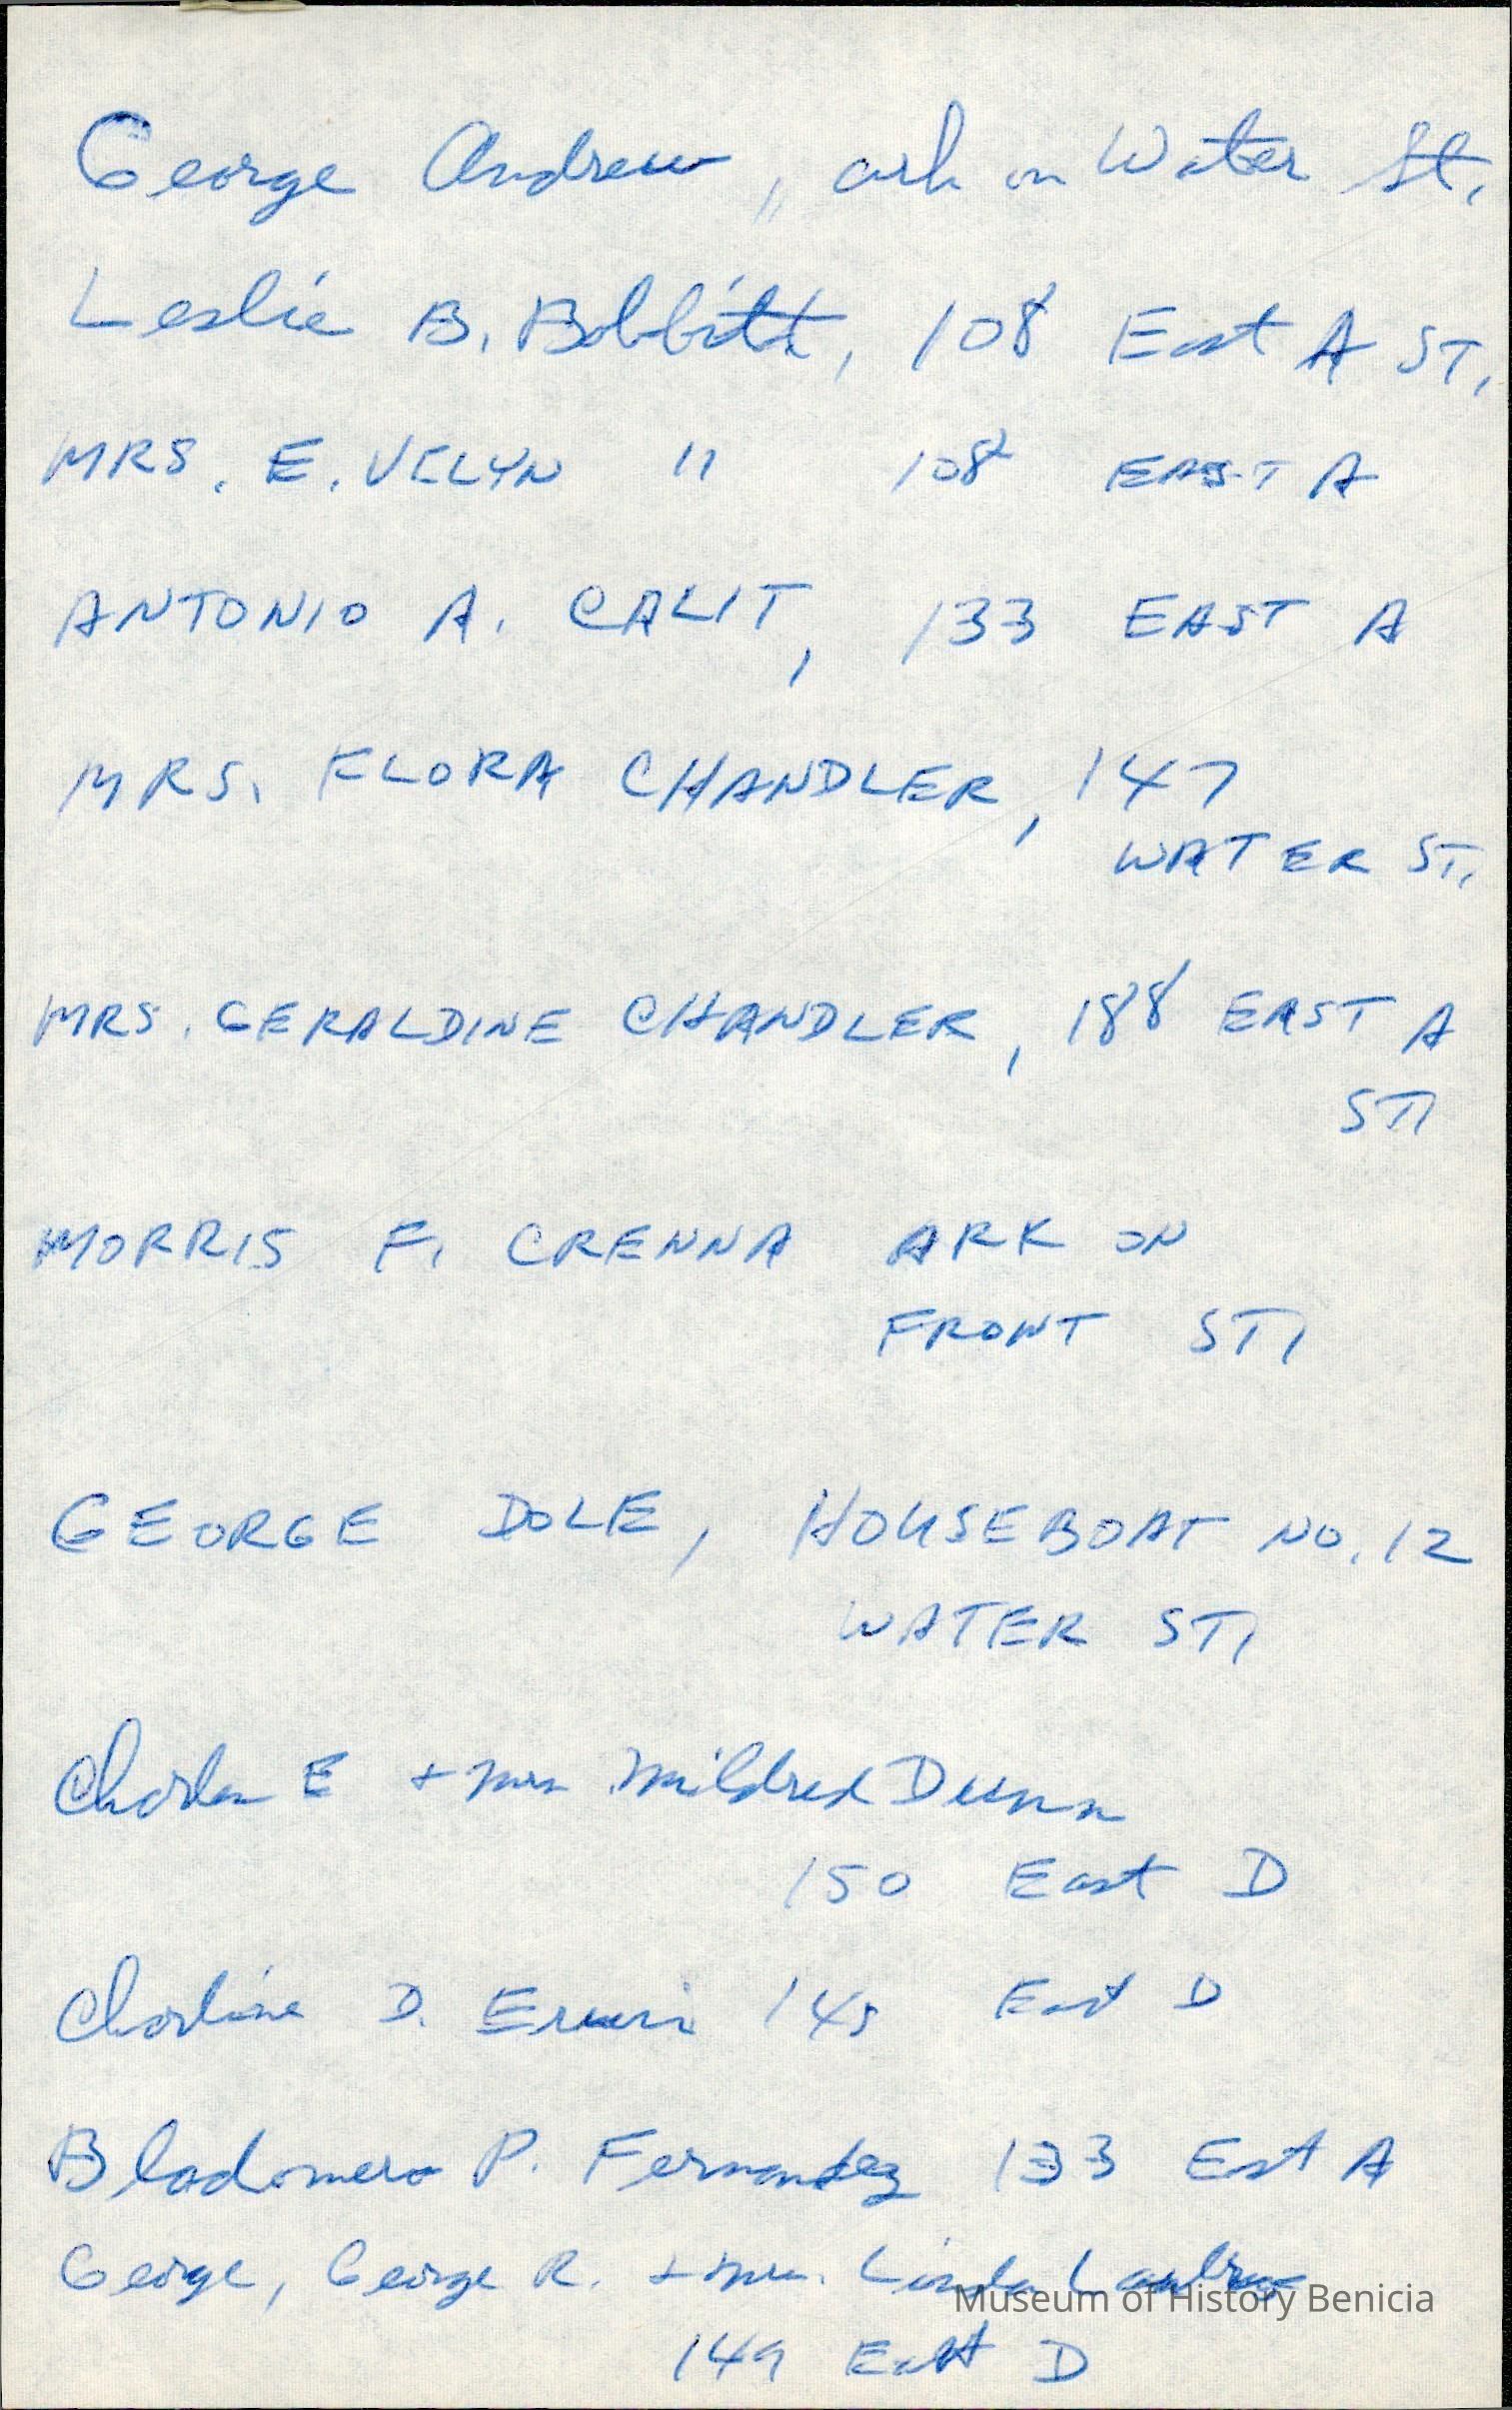 George Andrew, ark on Water St.
Leslie B. Bobbitt, 108 East A ST.
MRS. E. VELYN " 108 EAST A
ANTONIO A. CALIT, 133 EAST A
MRS. FLORA CHANDLER, 147
WATER ST.
MRS. GERALDINE CHANDLER, 188 EAST A
ST.
MORRIS F. CRENNA ARK ON
FRONT ST.
GEORGE DOLE, HOUSEBOAT NO. 12
WATER ST.
Charles E + Mrs Mildred Dunn
150 East D
Charline D. Erwin 145 East D
Bladomero P. Fernandez 133 East A
George, George R. + Mrs. Linda
149 East D
Museum of History Benicia